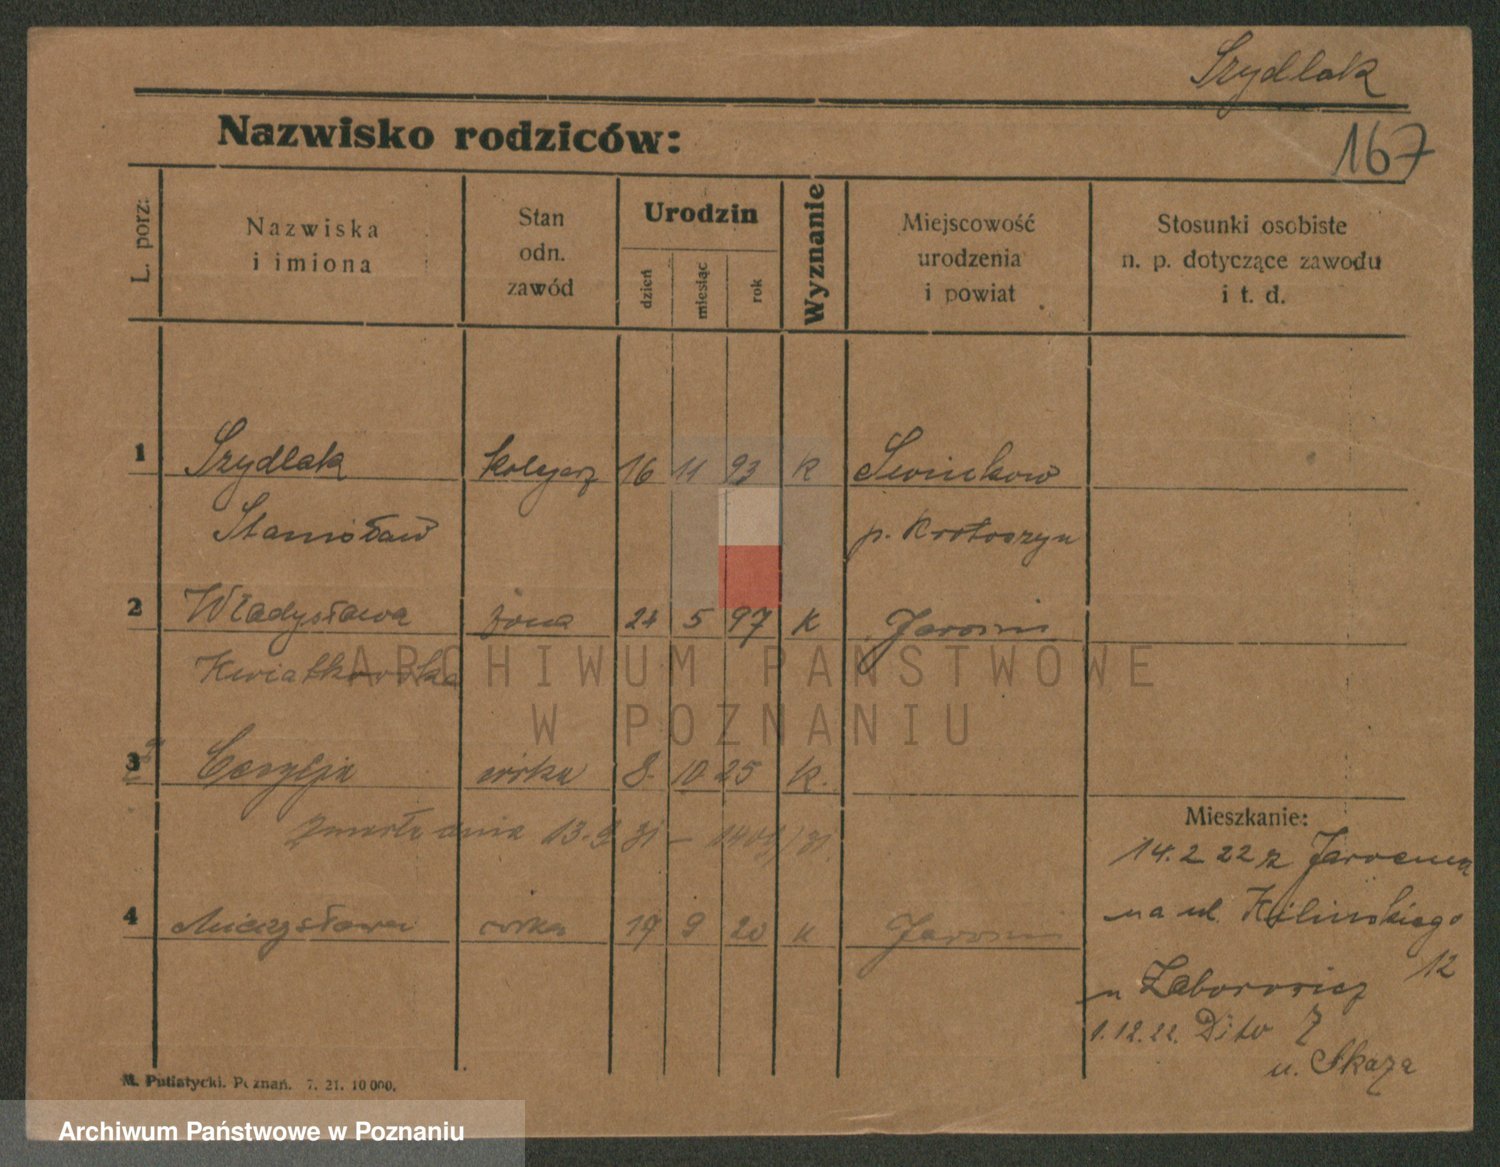 Szydlak
167
Nazwisko rodziców:
L. porz:
Nazwiska
i imiona
Stan
odn.
zawód
Urodzin
dzień
miesiąc
rok
Wyznanie
Miejscowość
urodzenia
i powiat
Stosunki osobiste
n. p. dotyczące zawodu
i t. d.
1 Szydlak kolejarz 16 11 93 K
Stanisław p. Krotoszyn
2 Władysława żona 24 5 97 K Jarocin
Kwiatkowska
ARCHIWUM PAŃSTWOWE
W POZNANIU
3 Cecylja córka 8. 10 25 K.
Zmarła dnia 13.9 31 –
Mieszkanie:
14.2 22 z Jarocina
na ul. Kilińskiego
12
4 Mieczysława córka 19 9 20 K Jarocin
u Zaborowicz
1.12.22. Dito 7
u. Skaza
M. Putiatycki. Poznań. 7. 21. 10 000.
Archiwum Państwowe w Poznaniu